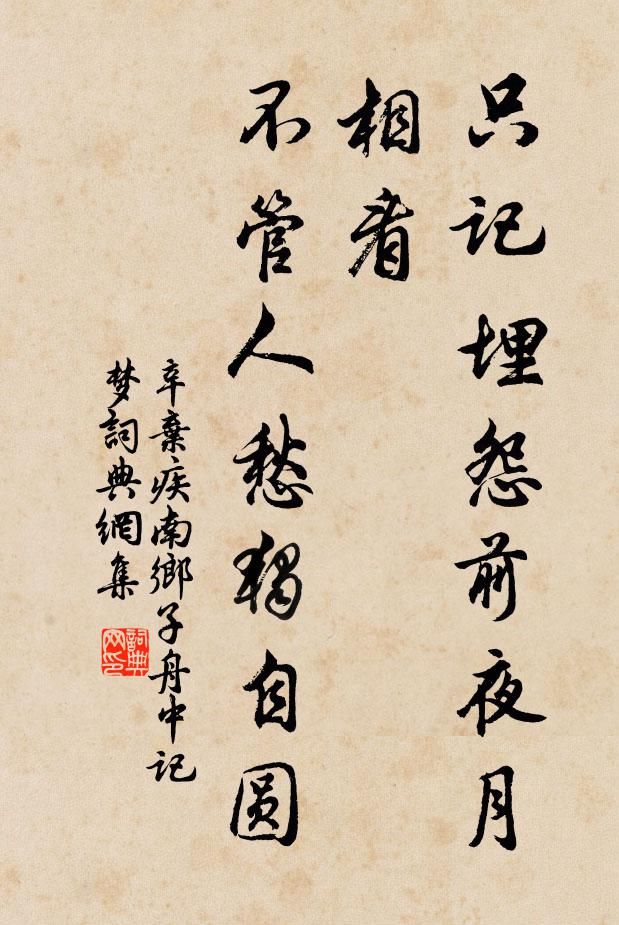 只记埋怨前夜月
相看
不管人愁独自圆
辛棄疾南鄉子舟中记
梦詞典網集
詞典网印